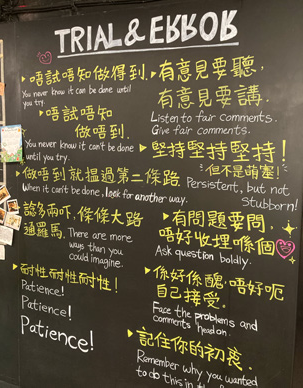 TRIAL & ERROR
唔試唔知做得到.
You never know it can be done until
you try.
唔試唔知
做唔到.
You never know it can't be done
until you try.
做唔到就搵過第二條路.
When it can't be done, look for another way.
諗多兩吓，條條大路
通羅馬.
There are more
ways than you
could imagine.
耐性耐性耐性!
Patience!
Patience!
Patience!
有意見要聽,
有意見要講.
Listen to fair comments.
Give fair comments.
堅持堅持堅持!
但不是萌塞!
Persistent, but not
Stubborn!
有問題要問,
唔好收埋喺個
Ask question boldly.
係好係醜,唔好呃
自己接受.
Face the problems and
comments head on.
記住你的初衷.
Remember why you wanted
to do this in